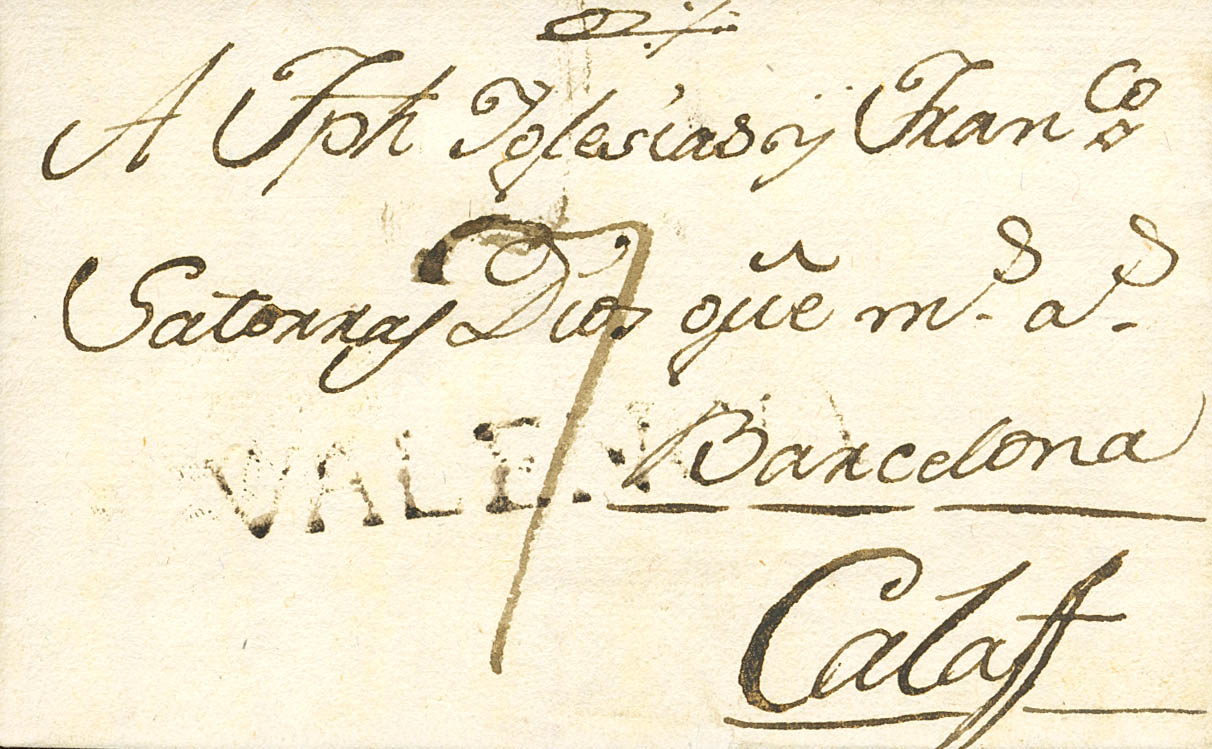 A Jph Yglesias y Franco
Satorras Dios gũe ms. as.
7
VALEN
Barcelona
Calaff